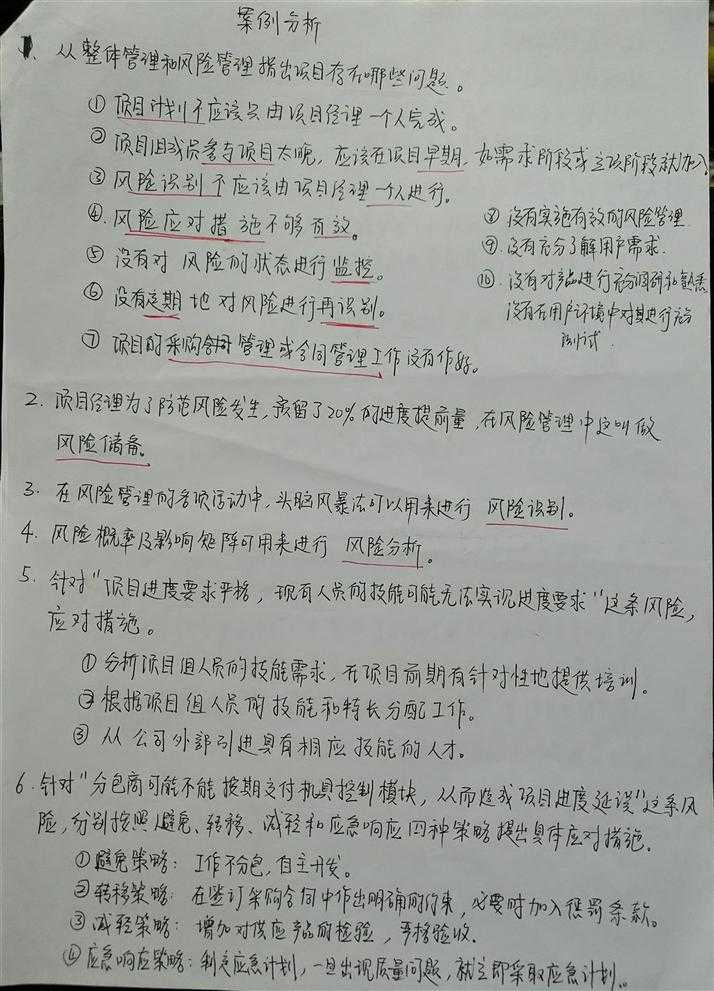 案例分析
1. 从整体管理和风险管理指出项目存在哪些问题。
① 项目计划不应该只由项目经理一个人完成。
② 项目组成员参与项目太晚，应该在项目早期，如需求阶段或立项阶段就加入。
③ 风险识别不应该由项目经理一个人进行。
④ 风险应对措施不够有效。
⑤ 没有对风险的状态进行监控。
⑥ 没有定期地对风险进行再识别。
⑦ 项目的采购合同管理或合同管理工作没有作好。
⑧ 没有实施有效的风险管理.
⑨ 没有充分了解用户需求.
⑩ 没有对产品进行充分调研和熟悉
没有在用户环境中对其进行充分
测试.
2. 项目经理为了防范风险发生，预留了20%的进度提前量，在风险管理中这叫做
风险储备。
3. 在风险管理的各项活动中，头脑风暴法可以用来进行 风险识别。
4. 风险概率及影响矩阵可用来进行 风险分析。
5. 针对"项目进度要求严格，现有人员的技能可能无法实现进度要求"这条风险，
应对措施。
① 分析项目组人员的技能需求，在项目前期有针对性地提供培训。
② 根据项目组人员的技能和特长分配工作。
③ 从公司外部引进具有相应技能的人才。
6. 针对"分包商可能不能按期交付机具控制模块，从而造成项目进度延误"这条风
险，分别按照避免、转移、减轻和应急响应四种策略提出具体应对措施.
① 避免策略：工作不分包，自主开发。
② 转移策略：在签订采购合同中作出明确的约束，必要时加入惩罚条款。
③ 减轻策略：增加对供应产品的检验，严格验收.
④ 应急响应策略：制定应急计划，一旦出现质量问题，就立即采取应急计划。